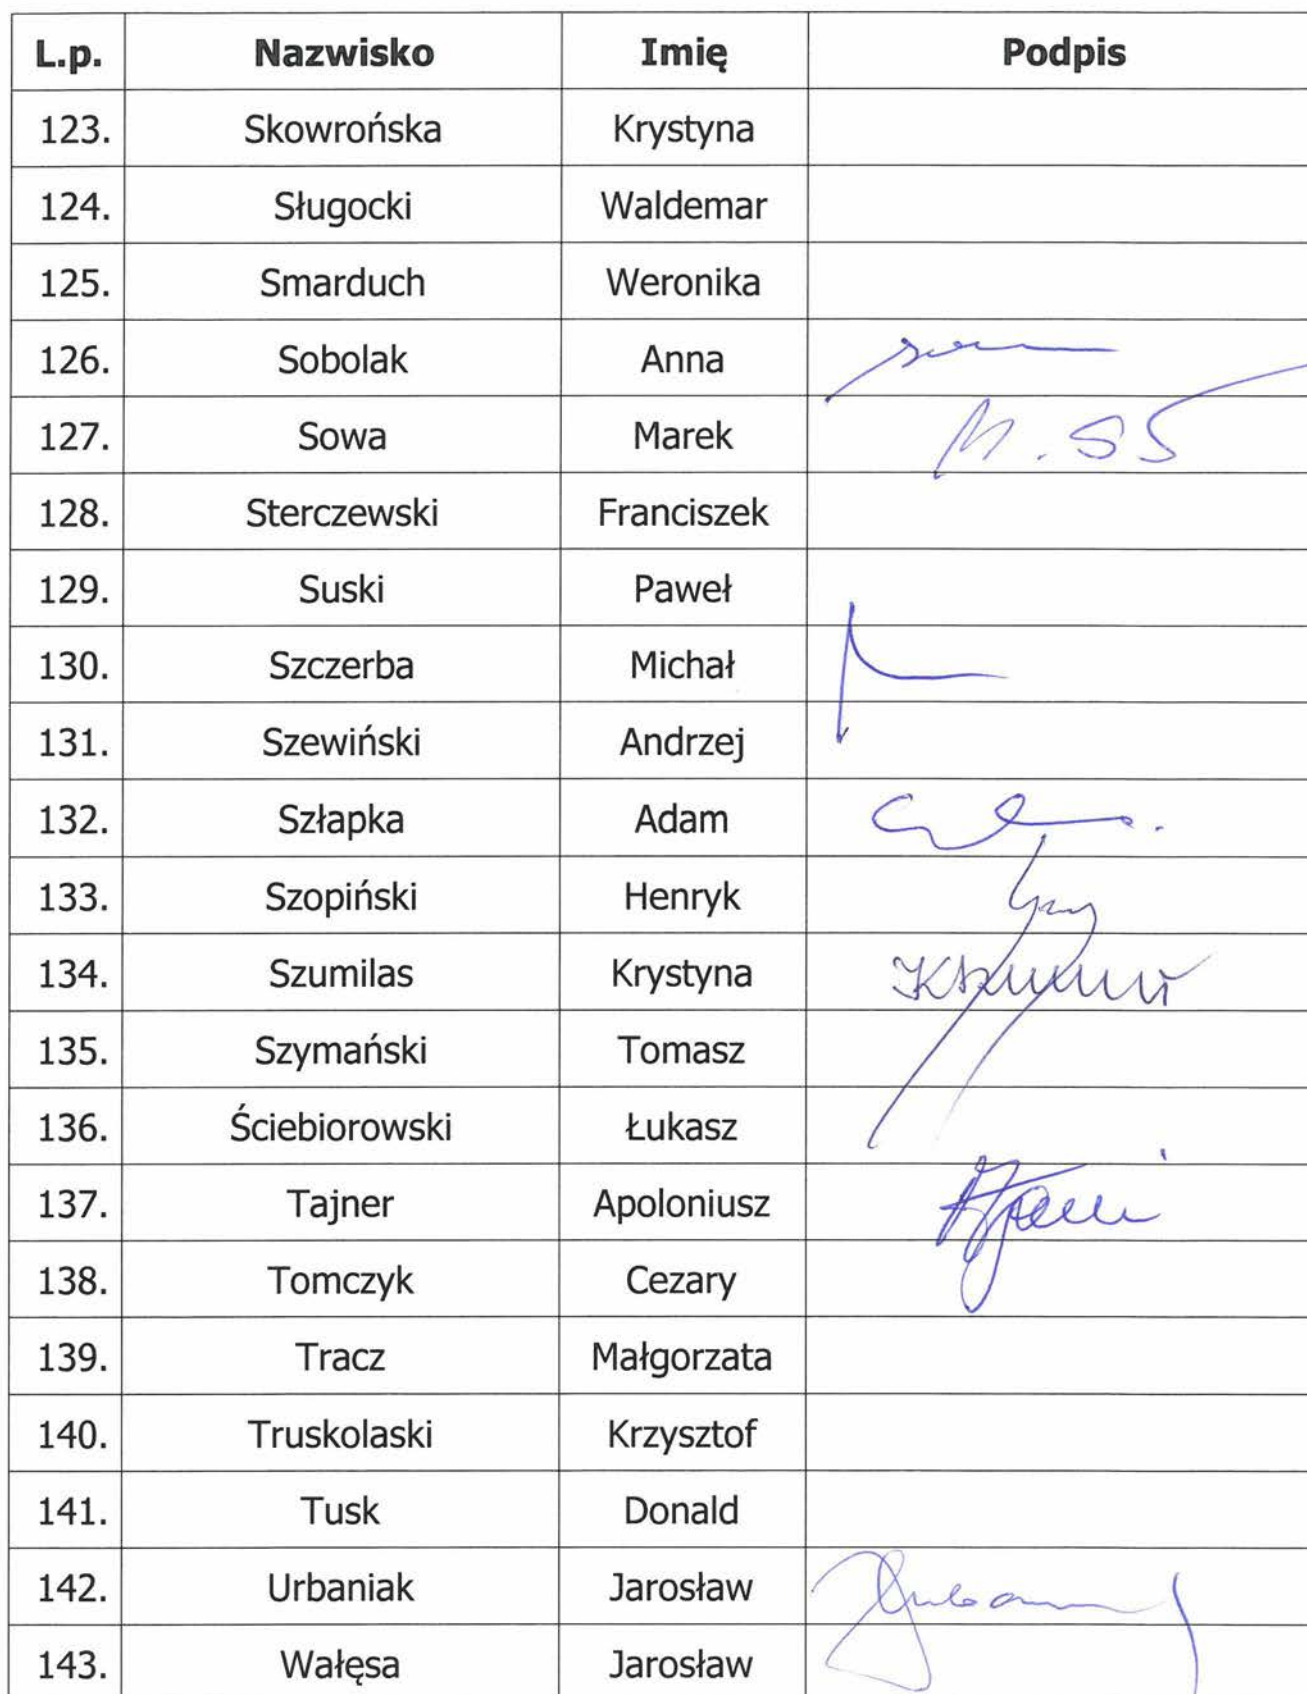 L.p. Nazwisko Imię Podpis
123. Skowrońska Krystyna
124. Sługocki Waldemar
125. Smarduch Weronika
126. Sobolak Anna
127. Sowa Marek M. S
128. Sterczewski Franciszek
129. Suski Paweł
130. Szczerba Michał
131. Szewiński Andrzej
132. Szłapka Adam
133. Szopiński Henryk
134. Szumilas Krystyna
135. Szymański Tomasz
136. Ściebiorowski Łukasz
137. Tajner Apoloniusz
138. Tomczyk Cezary
139. Tracz Małgorzata
140. Truskolaski Krzysztof
141. Tusk Donald
142. Urbaniak Jarosław
143. Wałęsa Jarosław